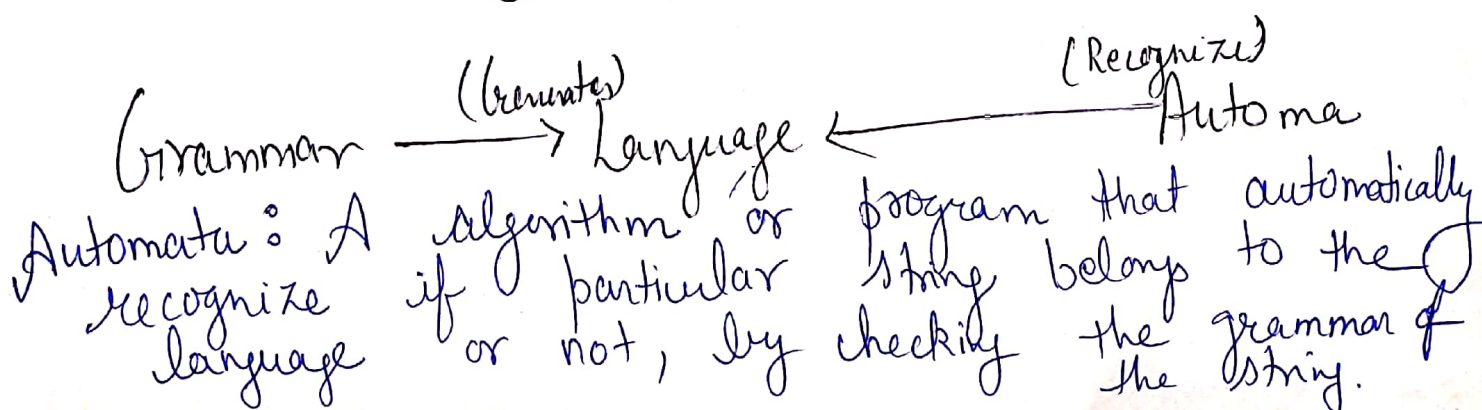 (Generates) (Recognize)
Grammar → Language ← Automa
Automata : A algorithm or program that automatically
recognize if particular string belongs to the
language or not, by checking the grammar of
the string.